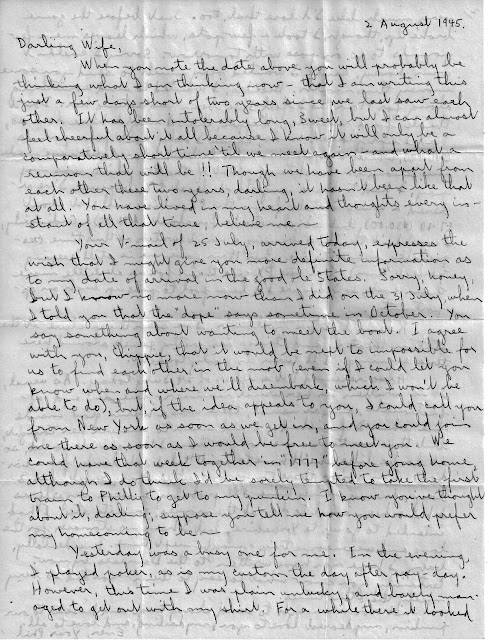 2 August 1945.
Darling Wife,
When you note the date above you will probably be
thinking what I am thinking now – that I am writing this
just a few days short of two years since we last saw each
other. It has been intolerably long, Sweet, but I can almost
feel cheerful about it all because I know it will only be a
comparatively short time 'til we meet again – and what a
reunion that will be!! Though we have been apart from
each other these two years, darling, it hasn't been like that
at all. You have lived in my heart and thoughts every in-
stant of all that time, believe me –
Your V-mail of 25 July, arrived today, expresses the
wish that I might give you more definite information as
to my date of arrival in the good ole States. Sorry, honey,
but I know no more now than I did on the 31 July, when
I told you that the "dope" says sometime in October. You
say something about waiting to meet the boat. I agree
with you, Chippie, that it would be next to impossible for
us to find each other in the mob, even if I could let you
know when and where we'll disembark, which I won't be
able to do), but, if the idea appeals to you, I could call you
from New York as soon as we get in, and you could join
me there as soon as I would be free to meet you. We
could have that week together in "1977" before going home,
although I do think I'd be sorely tempted to take the first
train to Philly to get to my punkin. I know you've thought
about it, darling, suppose you tell me how you would prefer
my homecoming to be –
Yesterday was a busy one for me. In the evening,
I played poker, as is my custom the day after pay-day.
However, this time I was plain unlucky, and barely man-
aged to get out with my shirt. For a while there it looked